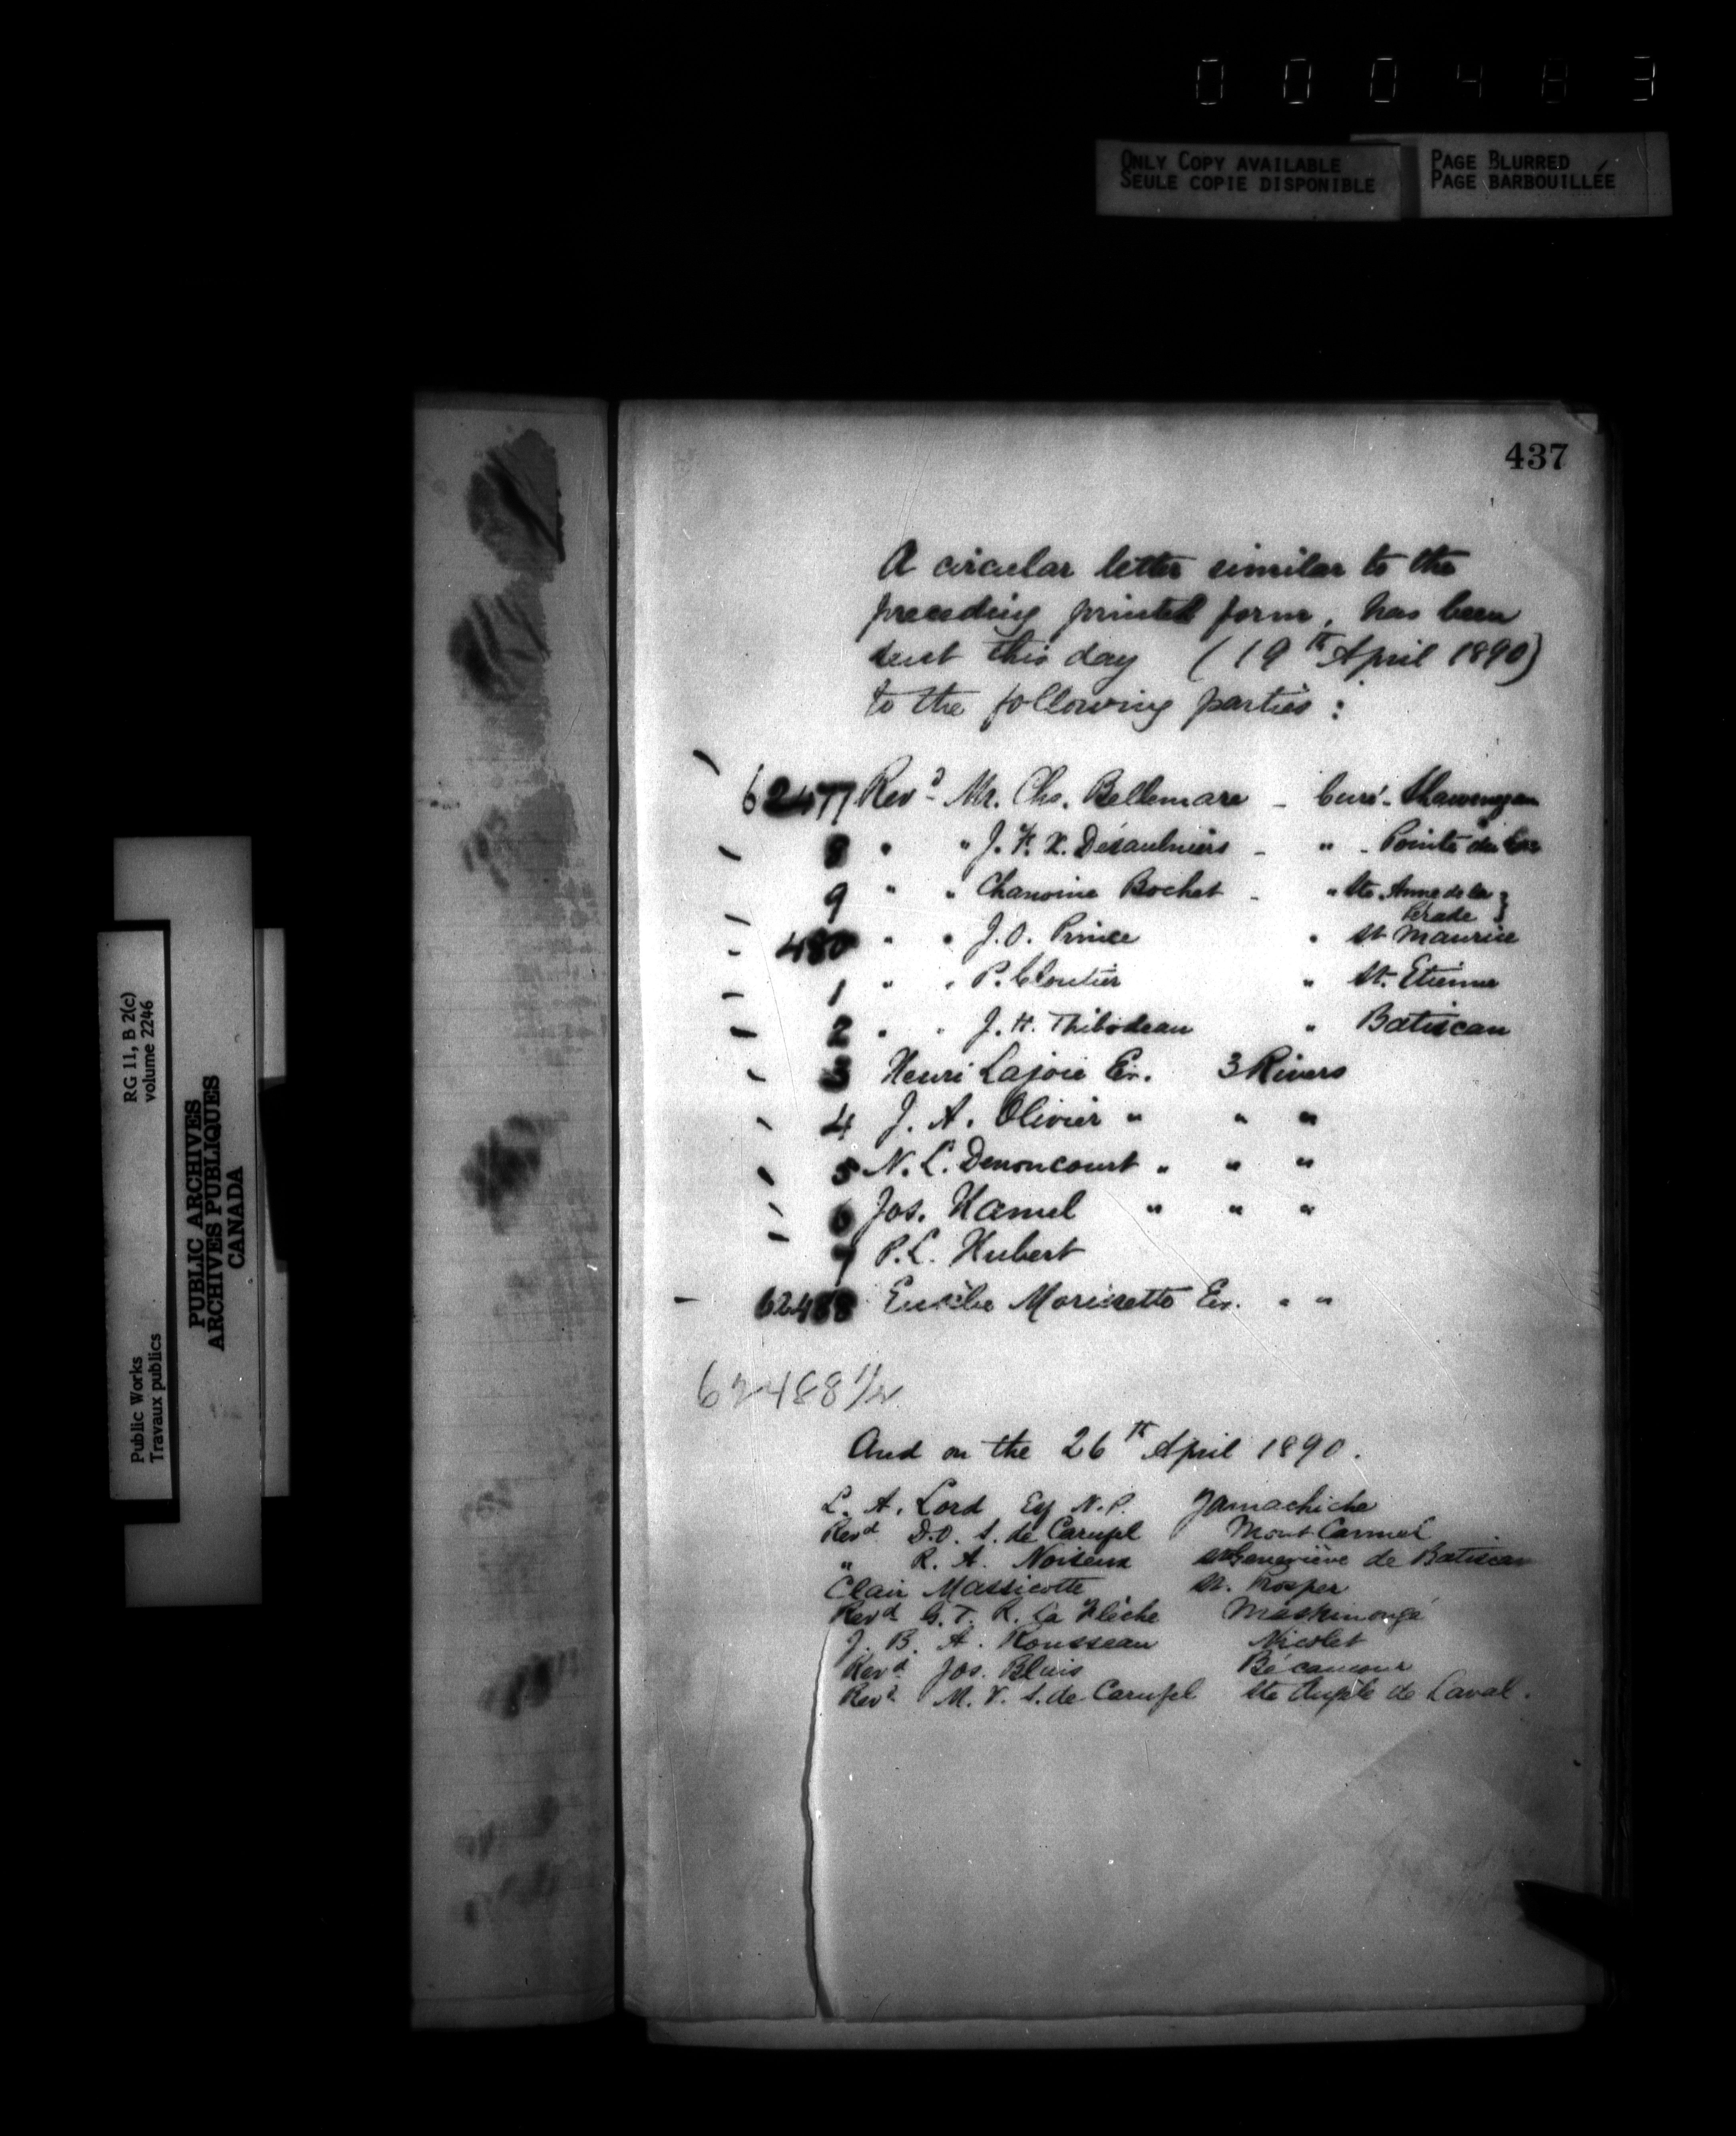 000483
ONLY COPY AVAILABLE
SEULE COPIE DISPONIBLE
PAGE BLURRED
PAGE BARBOUILLÉE
437
A circular letter similar to the
preceding printed form, has been
sent this day (19th April 1890)
to the following parties:
62477 Revd Mr. Chs. Bellemare - Curé - Shawenegan
8 " " J. F. X. Désaulniers - " - Pointe du Lac
9 " " Chanoine Bochet - " Ste. Anne de la
Pérade }
480 " " J. O. Prince " St Maurice
1 " " P. Cloutier " St. Etienne
2 " " J. H. Thibodeau " Batiscan
3 Henri Lajoie Er. 3 Rivers
4 J. A. Olivier " " "
5 N. L. Denoncourt " " "
6 Jos. Hamel " " "
7 P. L. Hubert
62488 Eusèbe Morissette Er. " "
62488 1/2
And on the 26th April 1890.
L. A. Lord Esq N.P. Yamachiche
Revd D.O. S. de Carufel Mont Carmel
" R. A. Noiseux Ste Geneviève de Batiscan
Clair Massicotte St. Prosper
Revd G. T. R. La Flèche Maskinongé
J. B. A. Rousseau Nicolet
Revd Jos. Blais Bécancour
Revd M. V. S. de Carufel Ste Angèle de Laval.
Public Works
Travaux publics
RG 11, B 2(c)
volume 2246
PUBLIC ARCHIVES
ARCHIVES PUBLIQUES
CANADA